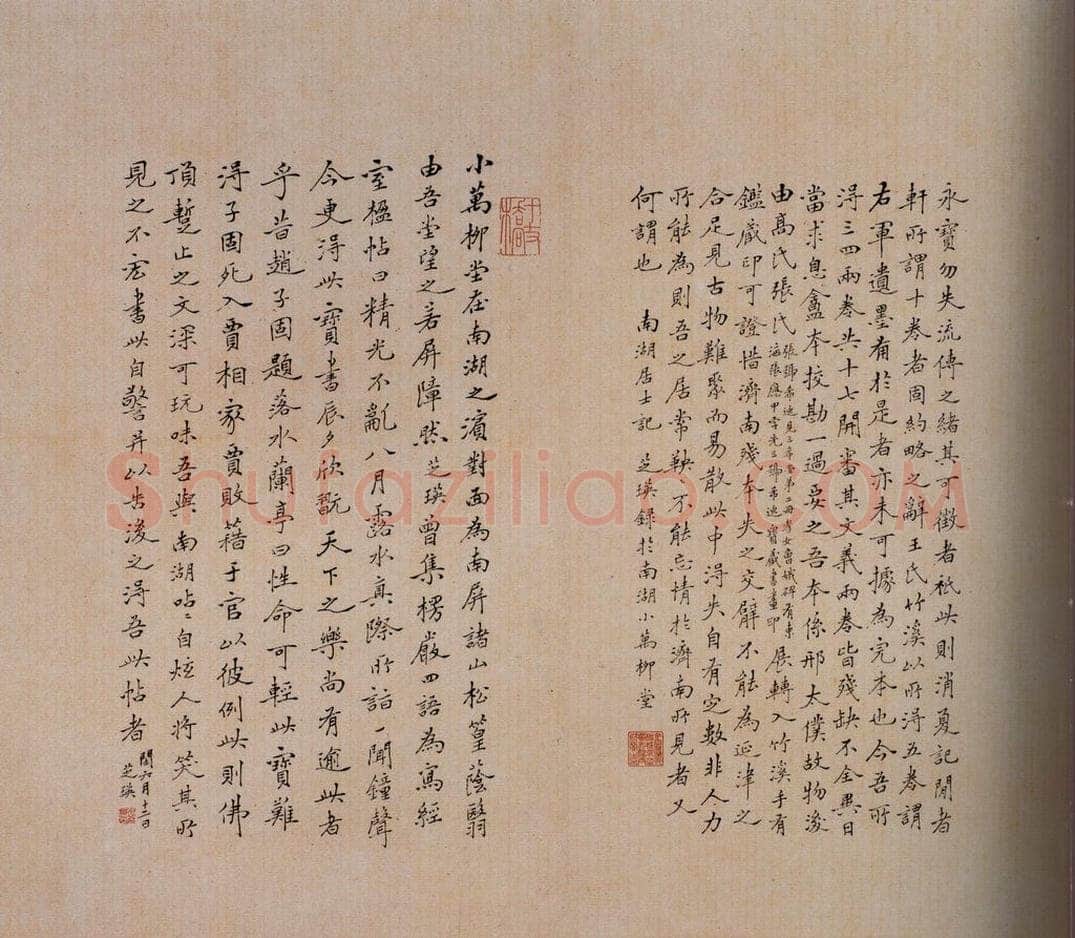 永寶勿失流傳之緒其可徵者祇此則消夏記閒者
軒所謂十卷者固約略之辭王氏竹溪以所得五卷謂
右軍遺墨有於是者亦未可據為完本也今吾所
得三四兩卷共十七開審其文義兩卷皆殘缺不全異日
當求息盦本挍勘一過要之吾本係邢太僕故物後
由高氏張氏展轉入竹溪手有
鑑藏印可證惜濟南殘本失之交臂不能為延津之
合足見古物難聚而易散此中得失自有定數非人力
所能為則吾之居常鞅不能忘情於濟南所見者又
何謂也 南湖居士記 芝瑛錄於南湖小萬柳堂
小萬柳堂在南湖之濱對面為南屏諸山松篁蔭翳
由吾堂望之若屏障然芝瑛曾集楞嚴四語為寫經
室楹帖曰精光不亂八月露水真際所詣一聞鐘聲
今更得此寶書辰夕欣翫天下之樂尚有逾此者
乎昔趙子固題落水蘭亭曰性命可輕此寶難
得子固死入賈相家賈敗籍于官以彼例此則佛
頂蹔止之文深可玩味吾與南湖呫呫自炫人將笑其所
見之不宏書此自警并以告後之得吾此帖者
閏六月十二日
芝瑛
Shufaziliao.COM